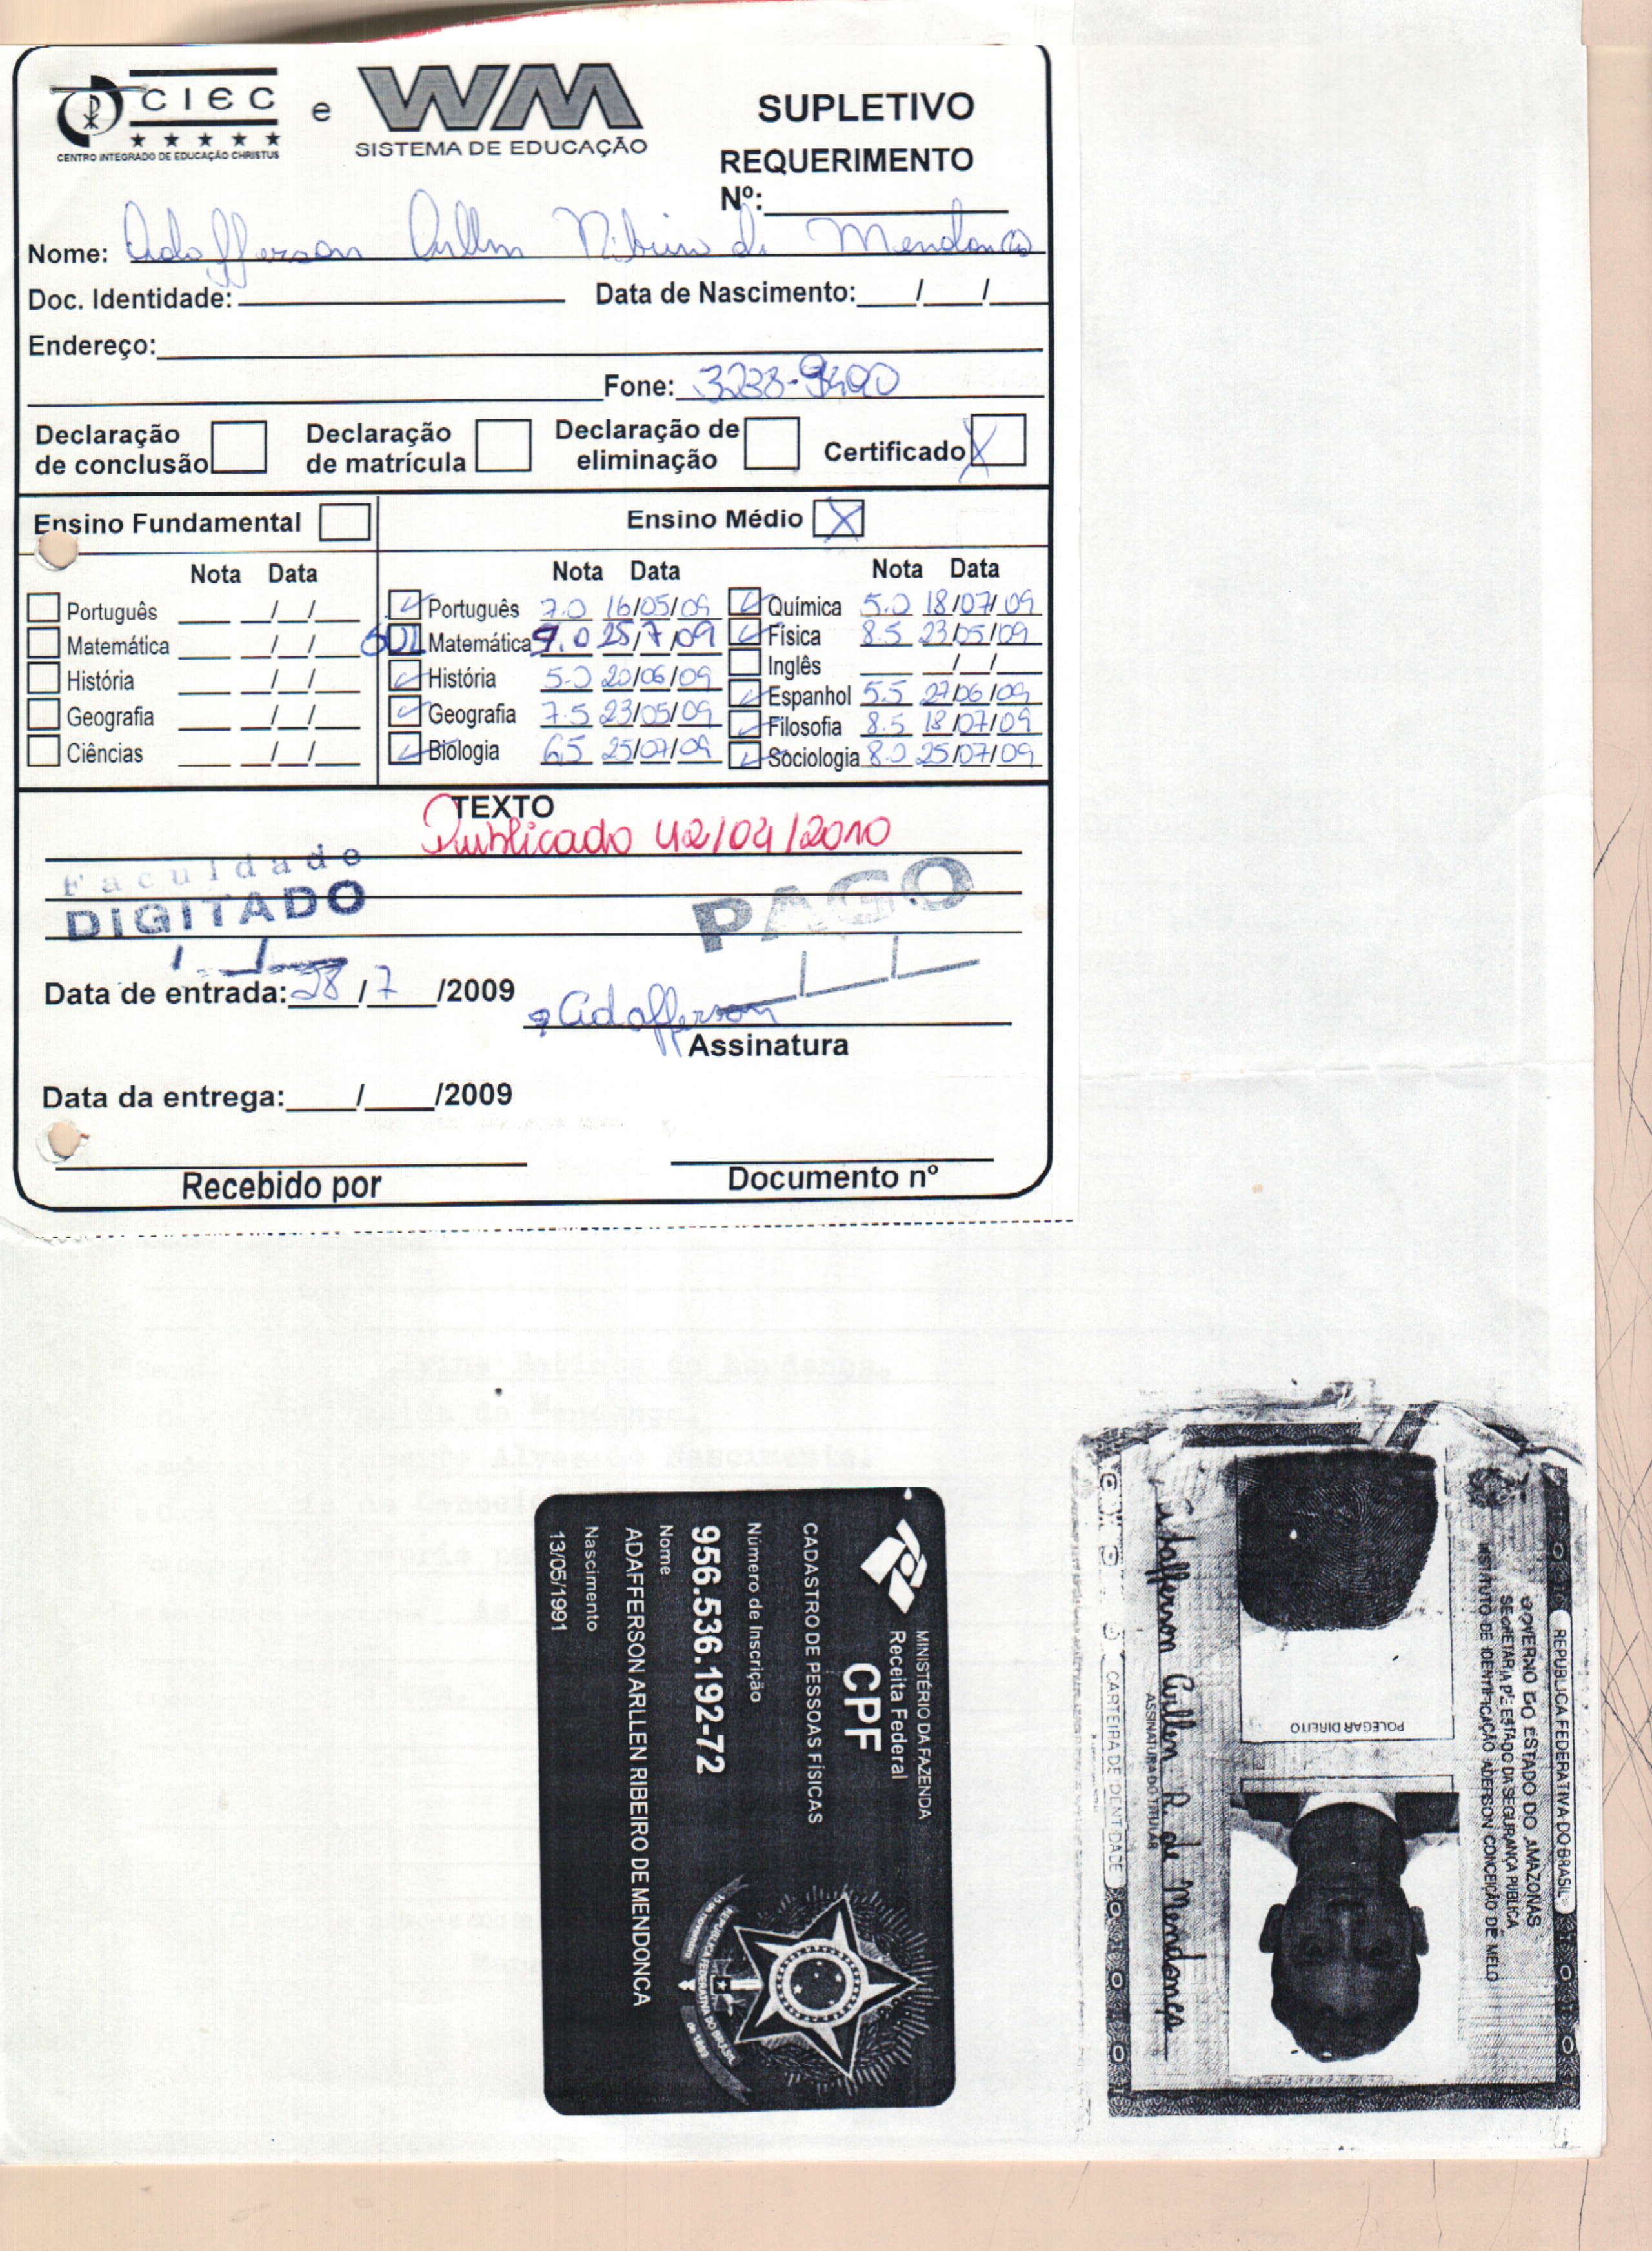 CIEC
CENTRO INTEGRADO DE EDUCAÇÃO CHRISTUS
e
WM
SISTEMA DE EDUCAÇÃO
SUPLETIVO
REQUERIMENTO
Nº:
Nome: Adafferson Arllen Ribeiro de Mendonça
Doc. Identidade: Data de Nascimento: / /
Endereço:
Fone: 3238-9490
Declaração de conclusão
Declaração de matrícula
Declaração de eliminação
Certificado X
Ensino Fundamental
Nota Data
Português / /
Matemática / /
História / /
Geografia / /
Ciências / /
Ensino Médio X
Nota Data
Português 7.0 16/05/09
Matemática 25/7/09
História 5.0 20/06/09
Geografia 7.5 23/05/09
Biologia 6,5 25/07/09
Nota Data
Química 5.0 18/07/09
Física 8.5 23/05/09
Inglês / /
Espanhol 5.5 27/06/09
Filosofia 8.5 18/07/09
Sociologia 8.0 25/07/09
TEXTO
Publicado 12/04/2010
Faculdade
DIGITADO
PAGO
Data de entrada: 28/7/2009
Adafferson
Assinatura
Data da entrega: / /2009
Recebido por
Documento nº
MINISTÉRIO DA FAZENDA
Receita Federal
CPF
CADASTRO DE PESSOAS FÍSICAS
Número de Inscrição
956.536.192-72
Nome
ADAFFERSON ARLLEN RIBEIRO DE MENDONCA
Nascimento
13/05/1991
REPÚBLICA FEDERATIVA DO BRASIL
15 de novembro
de 1889
REPÚBLICA FEDERATIVA DO BRASIL
GOVERNO DO ESTADO DO AMAZONAS
SECRETARIA DE ESTADO DA SEGURANÇA PÚBLICA
INSTITUTO DE IDENTIFICAÇÃO ADERSON CONCEIÇÃO DE MELO
POLEGAR DIREITO
Adafferson Arllen R. de Mendonça
ASSINATURA DO TITULAR
CARTEIRA DE IDENTIDADE